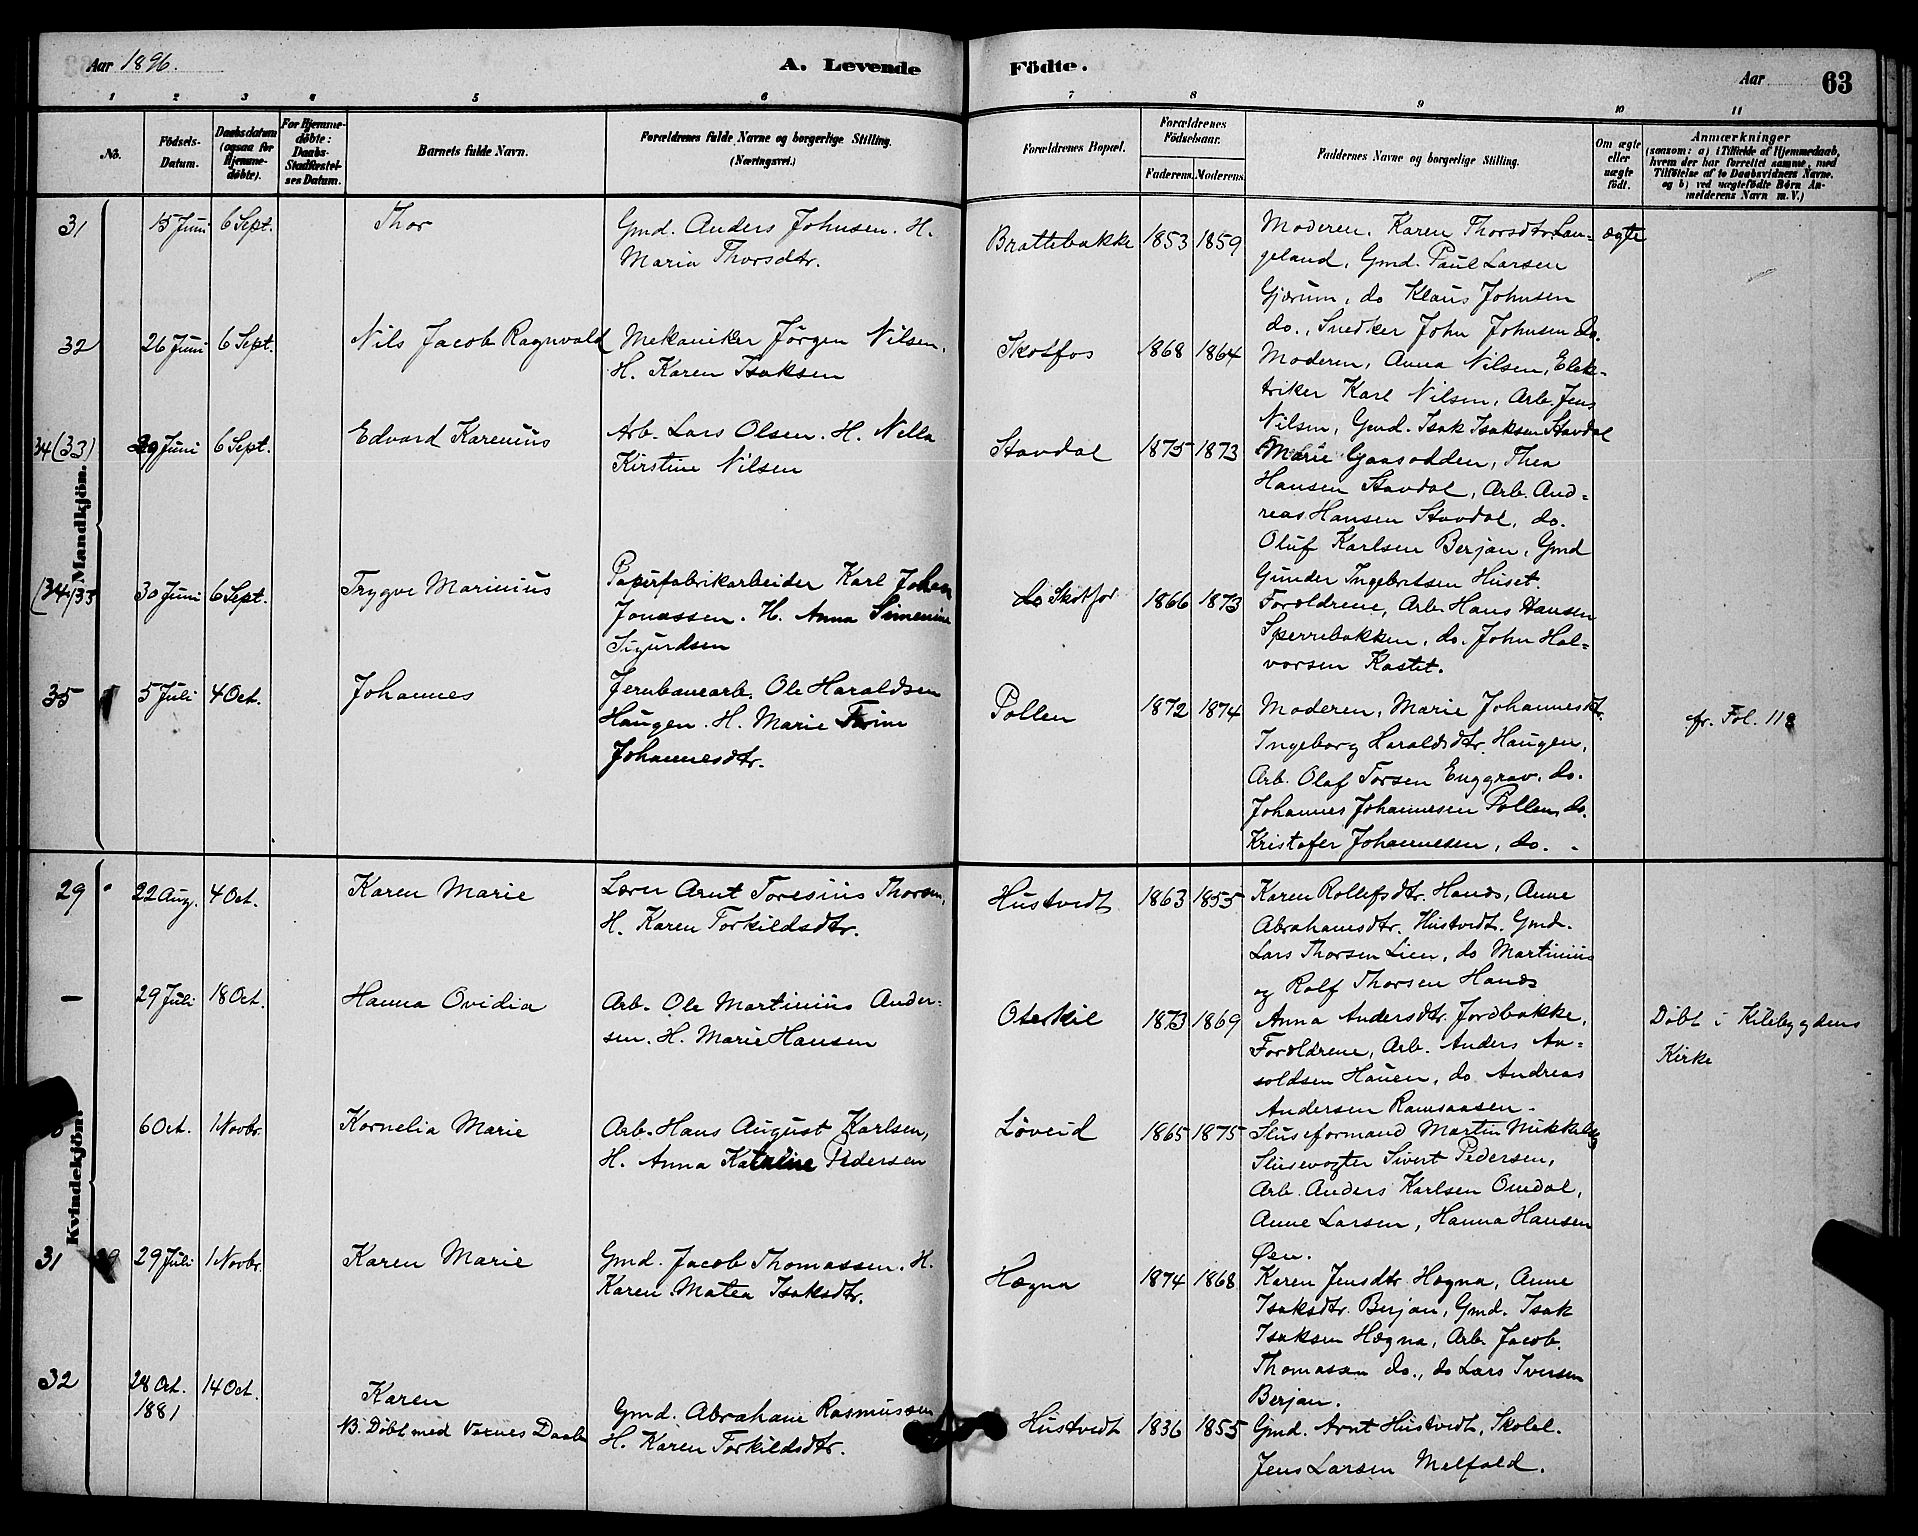 Aar 1896.
A. Levende Födte.
Aar 63
1 2 3 4 5 6 7 8 9 10 11
No.
Födsets-Datum.
Daabsdatum (ogsaa for Hjemme-døbte).
For Hjemme-døbte: Daabs-Stadfæstel-ses Datum.
Barnets fulde Navn.
Forældrenes fulde Navne og borgerlige Stilling. (Næringsvei.)
Forældrenes Bopæl.
Forældrenes Födselsaar.
Faderens. Moderens.
Faddernes Navne og borgerlige Stilling.
Om ægte eller uægte født.
Anmærkninger
(saasom: a) i Tilfælde af Hjemmedaab, hvem der har forrettet samme, med Tilföielse af to Daabsvidners Navne. og b) ved uægtefödte Börn An-melderens Navn m. V.)
Mandkjön.
31 15 Juni 6 Sept. Thor
Gmd. Anders Johnsen. H.
Maria Thorsdtr.
Brattebakke 1853 1859
Moderen, Karen Thorsdtr. Lan-
geland, Gmd. Paul Larsen
Gjærum, do Klaus Johnsen
do., Snedker John Johnsen do.
ægte
32 26 Juni 6 Sept. Nils Jacob Ragnvald
Mekaniker Jörgen Nilsen,
H. Karen Isaksen
Skotfos 1868 1864
Moderen, Anna Nilsen, Elek-
triker Karl Nilsen, Arb. Jens
Nilsen, Gmd. Isak Isaksen Stavdal
34 (33) 29 Juni 6 Sept. Edvard Karenius
Arb. Lars Olsen. H. Nella
Kirstine Nilsen
Stavdal 1875 1873
Marie Gaasodden, Thea
Hansen Stavdal, Arb. And-
reas Hansen Stavdal, do.
Oluf Karlsen Berjan, Gmd
Gunder Ingebretsen Huset
(34) 35 30 Juni 6 Sept. Trygve Marinius
Papirfabrikarbeider Karl Johan
Jonassen. H. Anna Simenine
Sigurdsen
do Skotfos 1866 1873
Forældrene, Arb. Hans Hansen
Sperrebakken, do. John Hal-
vorsen Kastet.
35 5 Juli 4 Oct. Johannes
Jernbanearb. Ole Haraldsen
Haugen. H. Marie
Johannesdtr.
Pollen 1872 1874
Moderen, Marie Johannesdtr.
Ingeborg Haraldsdtr. Haugen,
Arb. Olaf Torsen Enggrav, do.
Johannes Johannesen Pollen, do.
Kristofer Johannesen, do.
fr. Fol. 118
Kvindekjön.
29 22 Aug. 4 Oct. Karen Marie
Lærer Arnt Toresius Thorsen,
H. Karen Torkildsdtr.
Hustvedt 1863 1855
Karen Rollefsdtr. Hands, Anne
Abrahamsdtr. Hustvedt. Gmd.
Lars Thorsen Lien, do Martinius
og Rolf Thorsen Hands
— 29 Juli 18 Oct. Hanna Ovidia
Arb. Ole Martinius Ander-
sen. H. Marie Hansen
Oterkil 1873 1869
Anna Andersdtr. Jordbakke,
Forældrene, Arb. Anders An-
soldsen Hauen, do Andreas
Andersen Ramsaasen.
Døbt i Kilebygdens
Kirke
6 Oct. 1 Novbr. Kornelia Marie
Arb. Hans August Karlsen,
H. Anna Katrine Pedersen
Löveid 1865 1875
Sluseformand Martin Mikkelsen
Slusevogter Sivert Pedersen,
Arb. Anders Karlsen Omdal,
Anne Larsen, Hanna Hansen
Øen.
31 29 29 Juli 1 Novbr. Karen Marie
Gmd. Jacob Thomassen. H.
Karen Matea Isaksdtr.
Hægna 1874 1868
Karen Jensdtr. Hægna, Anne
Isaksdtr. Berjan, Gmd. Isak
Isaksen Hægna, Arb. Jacob
Thomasen do., do Lars Iversen
Berjan.
32 28 Oct. 1881 14 Oct. Karen
NB. Døbt med Voxnes Daab
Gmd. Abraham Rasmussen
H. Karen Torkildsdtr.
Hustvedt 1836 1855
Gmd. Arnt Hustvedt, Skolel.
Jens Larsen Melfald.